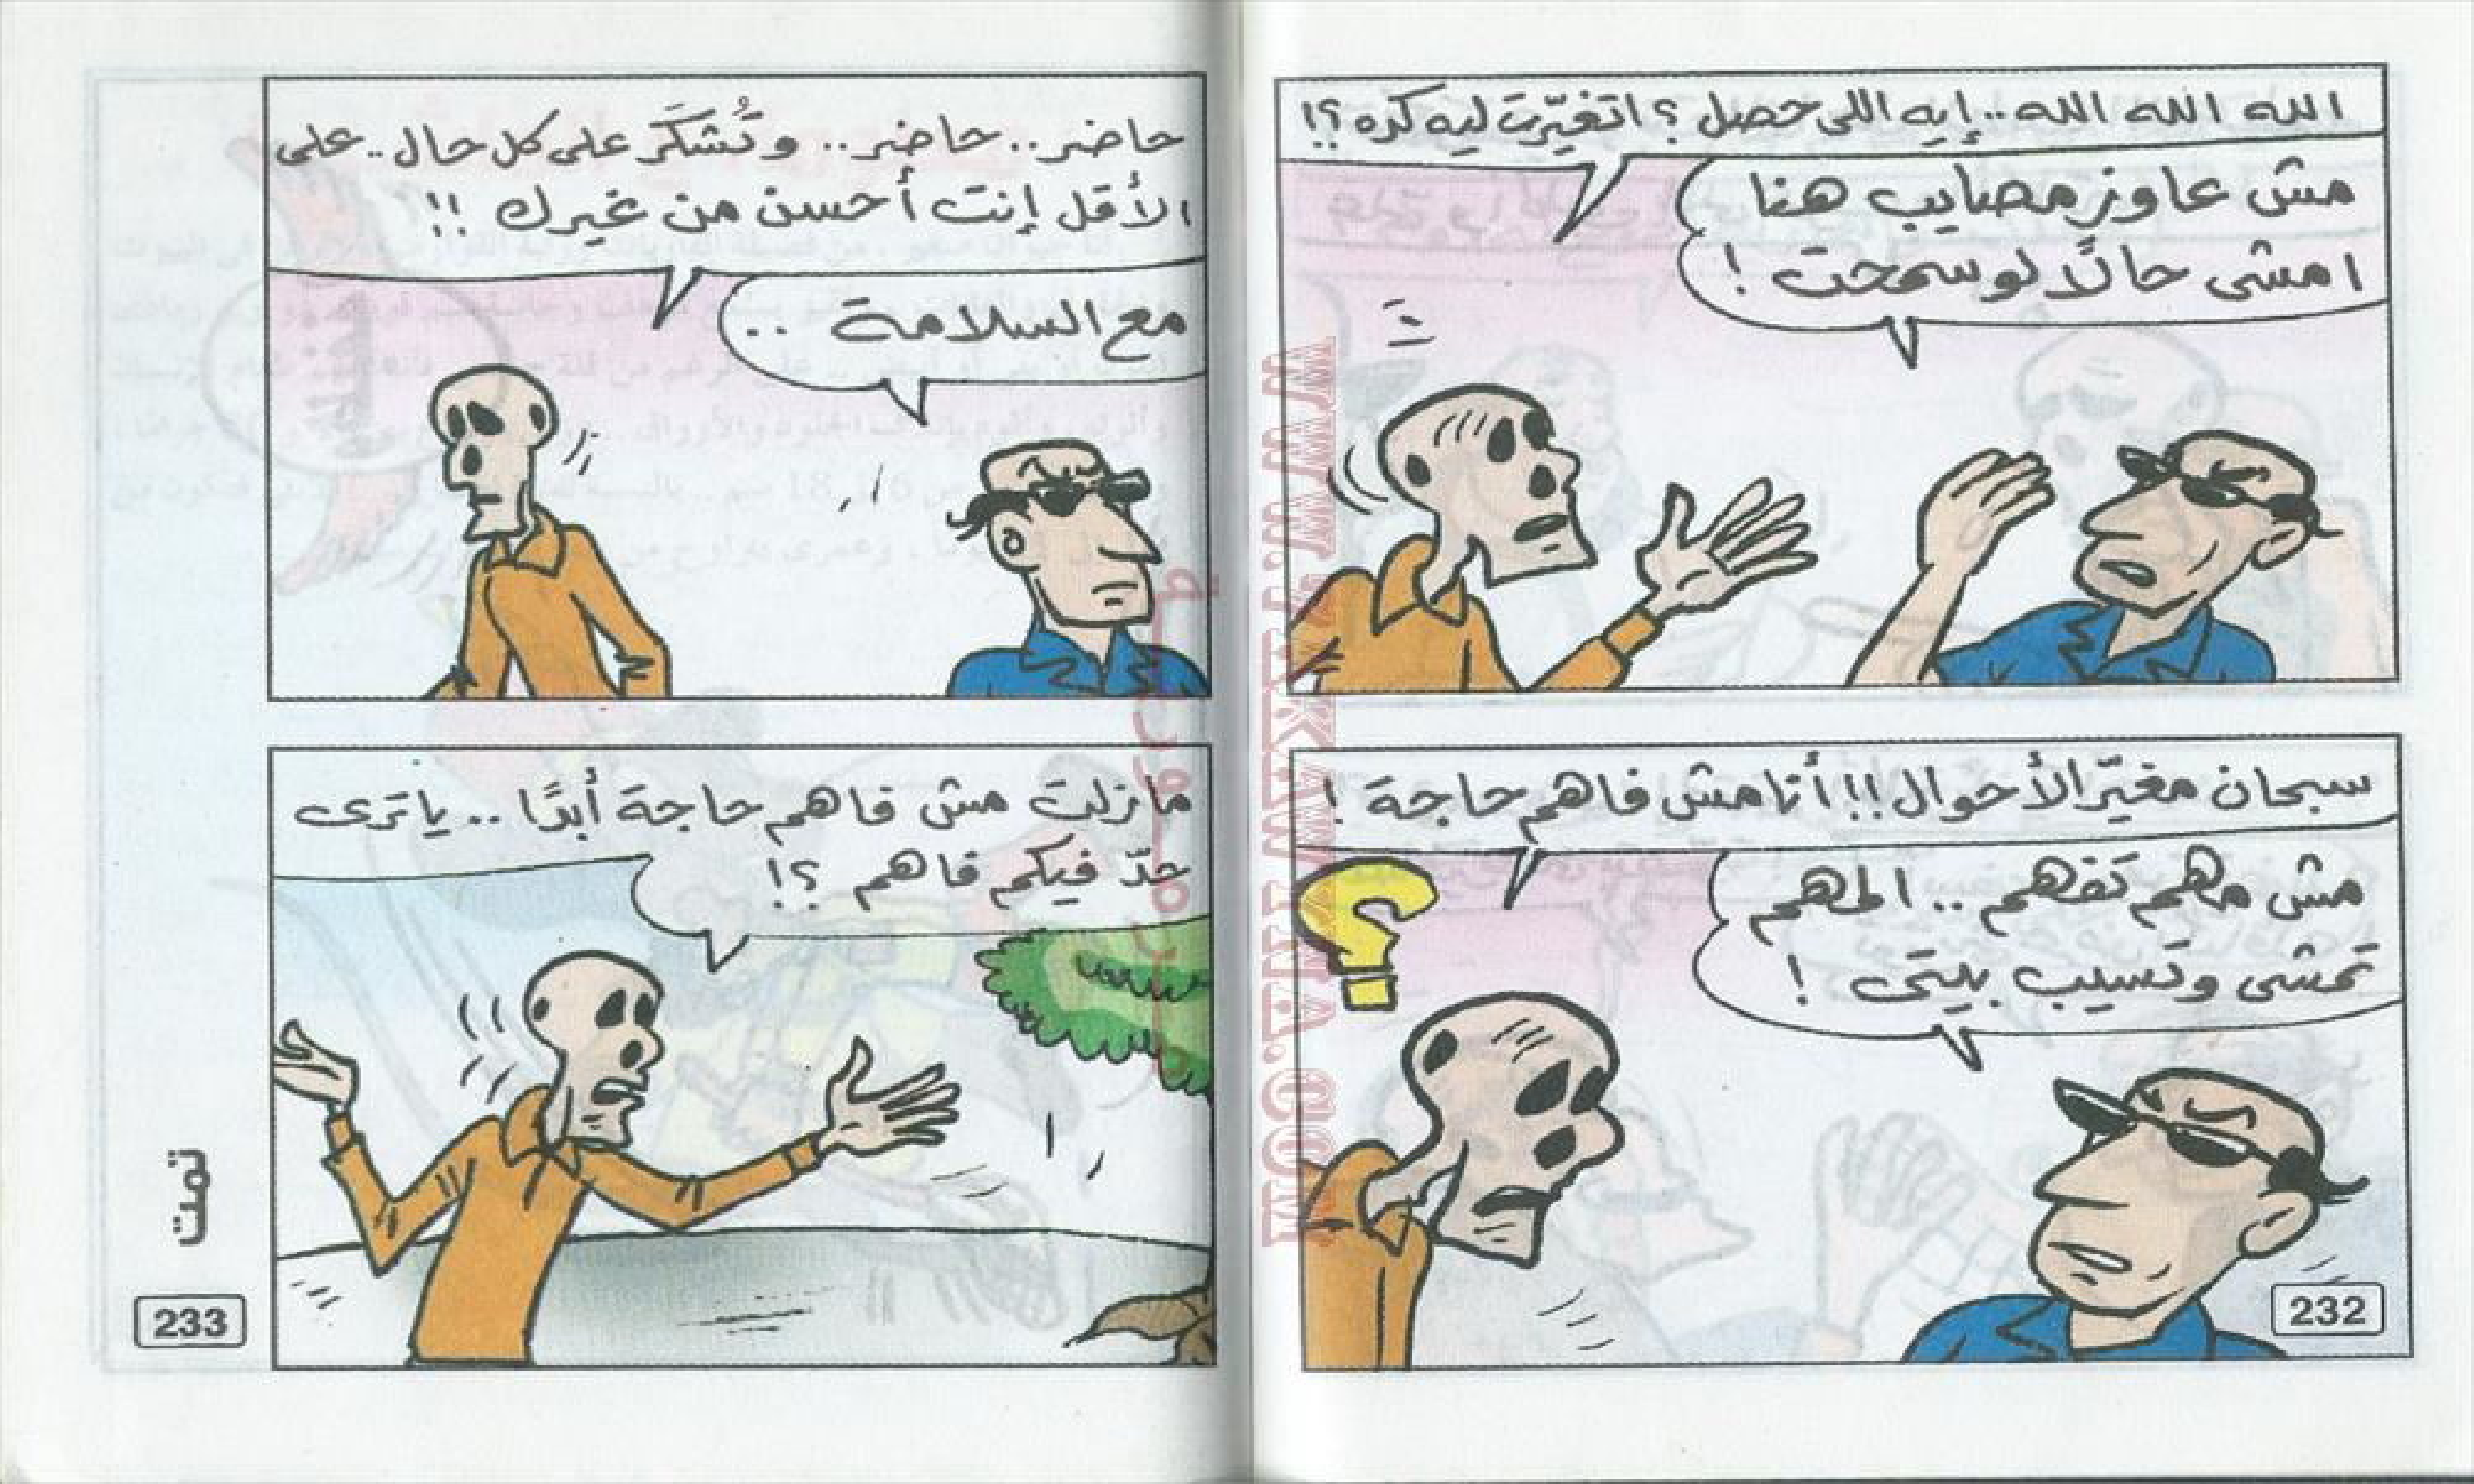 الله الله الله.. إيه اللى حصل؟ اتغيّرت ليه كده؟!
مش عاوز مصايب هنا
امشى حالًا لو سمحت!
سبحان مغيّر الأحوال!! أنا مش فاهم حاجة!
مش مهم تفهم.. المهم
تمشى وتسيب بيتى!
232
حاضر.. حاضر.. وتُشكَر على كل حال.. على
الأقل إنت أحسن من غيرك!!
مع السلامة..
مازلت مش فاهم حاجة أبدًا.. يا ترى
حدّ فيكم فاهم؟!
تمت
233